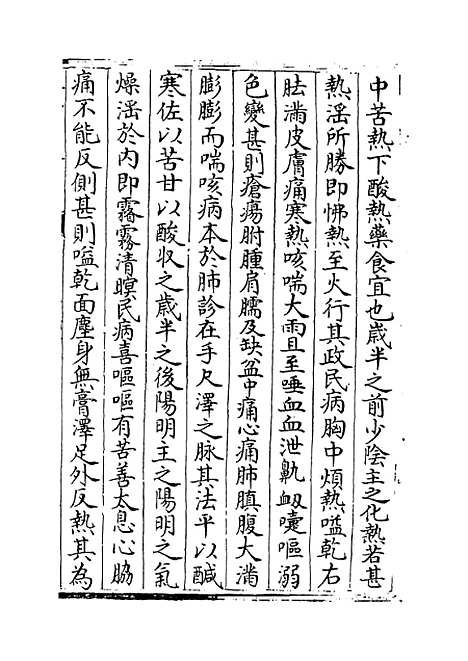 中苦熱下酸熱藥食宜也歲半之前少陰主之化熱若甚
熱淫所勝即怫熱至火行其政民病胸中煩熱嗌乾右
胠滿皮膚痛寒熱咳喘大雨且至唾血血泄鼽衂嚏嘔溺
色變甚則瘡瘍胕腫肩臑及缺盆中痛心痛肺䐜腹大滿
膨膨而喘咳病本於肺診在手尺澤之脉其法平以鹹
寒佐以苦甘以酸收之歲半之後陽明主之陽明之氣
燥淫於内即霿霧清暝民病喜嘔嘔有苦善太息心脇
痛不能反側甚則嗌乾面塵身無膏澤足外反熱其為